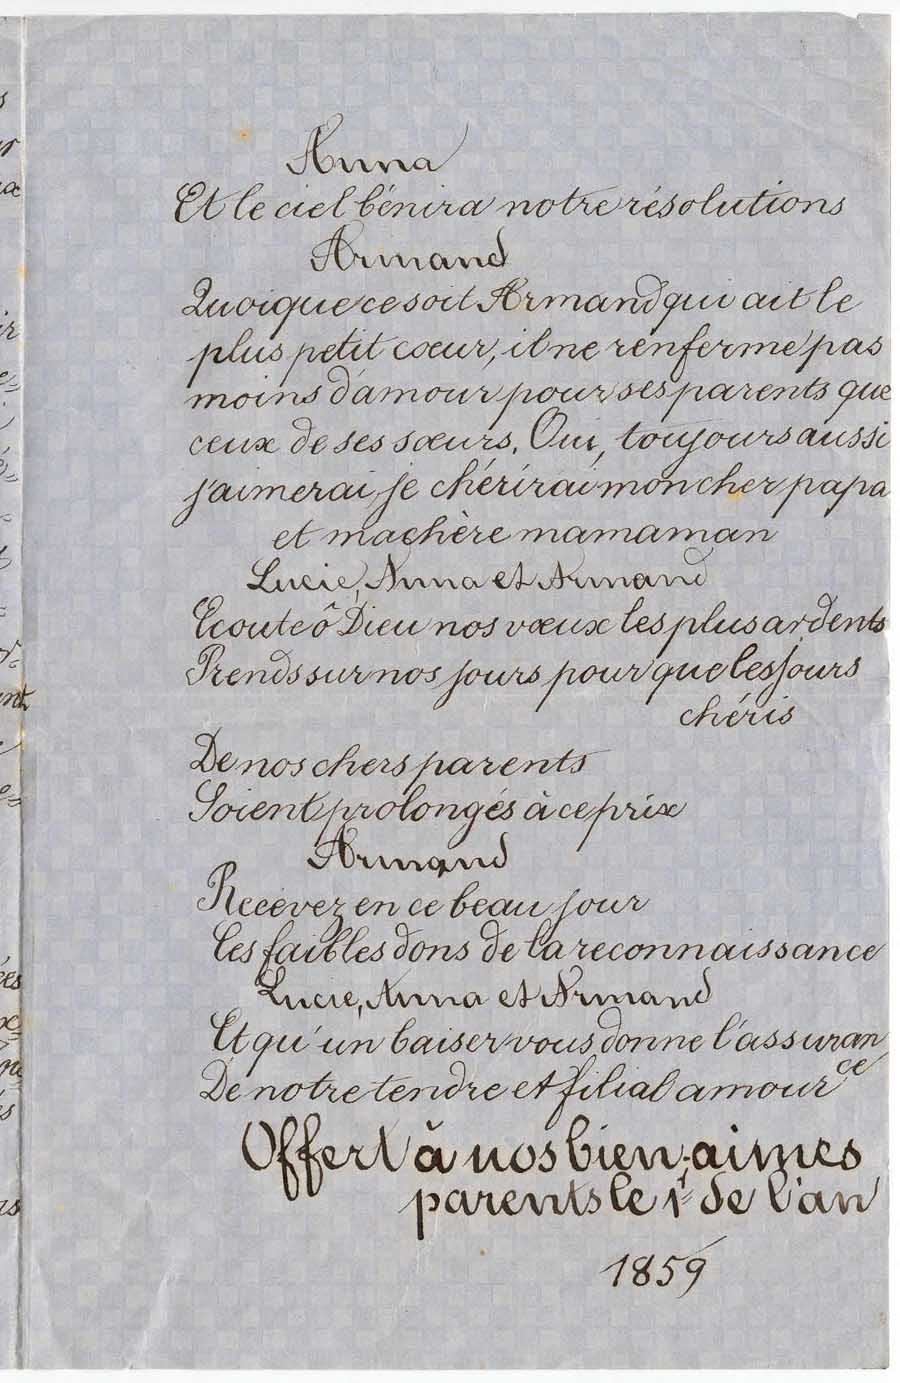 Anna
Et le ciel bénira notre résolutions
Armand
Quoique ce soit Armand qui ait le
plus petit cœur, il ne renferme pas
moins d'amour pour ses parents que
ceux de ses sœurs. Oui, toujours aussi
j'aimerai, je chérirai mon cher papa
et ma chère mamaman
Lucie, Anna et Armand
Ecoute ô Dieu nos vœux les plus ardents
Prends sur nos jours pour que les jours
chéris
De nos chers parents
Soient prolongés à ce prix
Armand
Recevez en ce beau jour
les faibles dons de la reconnaissance
Lucie, Anna et Armand
Et qu'un baiser vous donne l'assuran
ce
De notre tendre et filial amour
Offert à nos bien-aimes
parents le 1r de l'an
1859